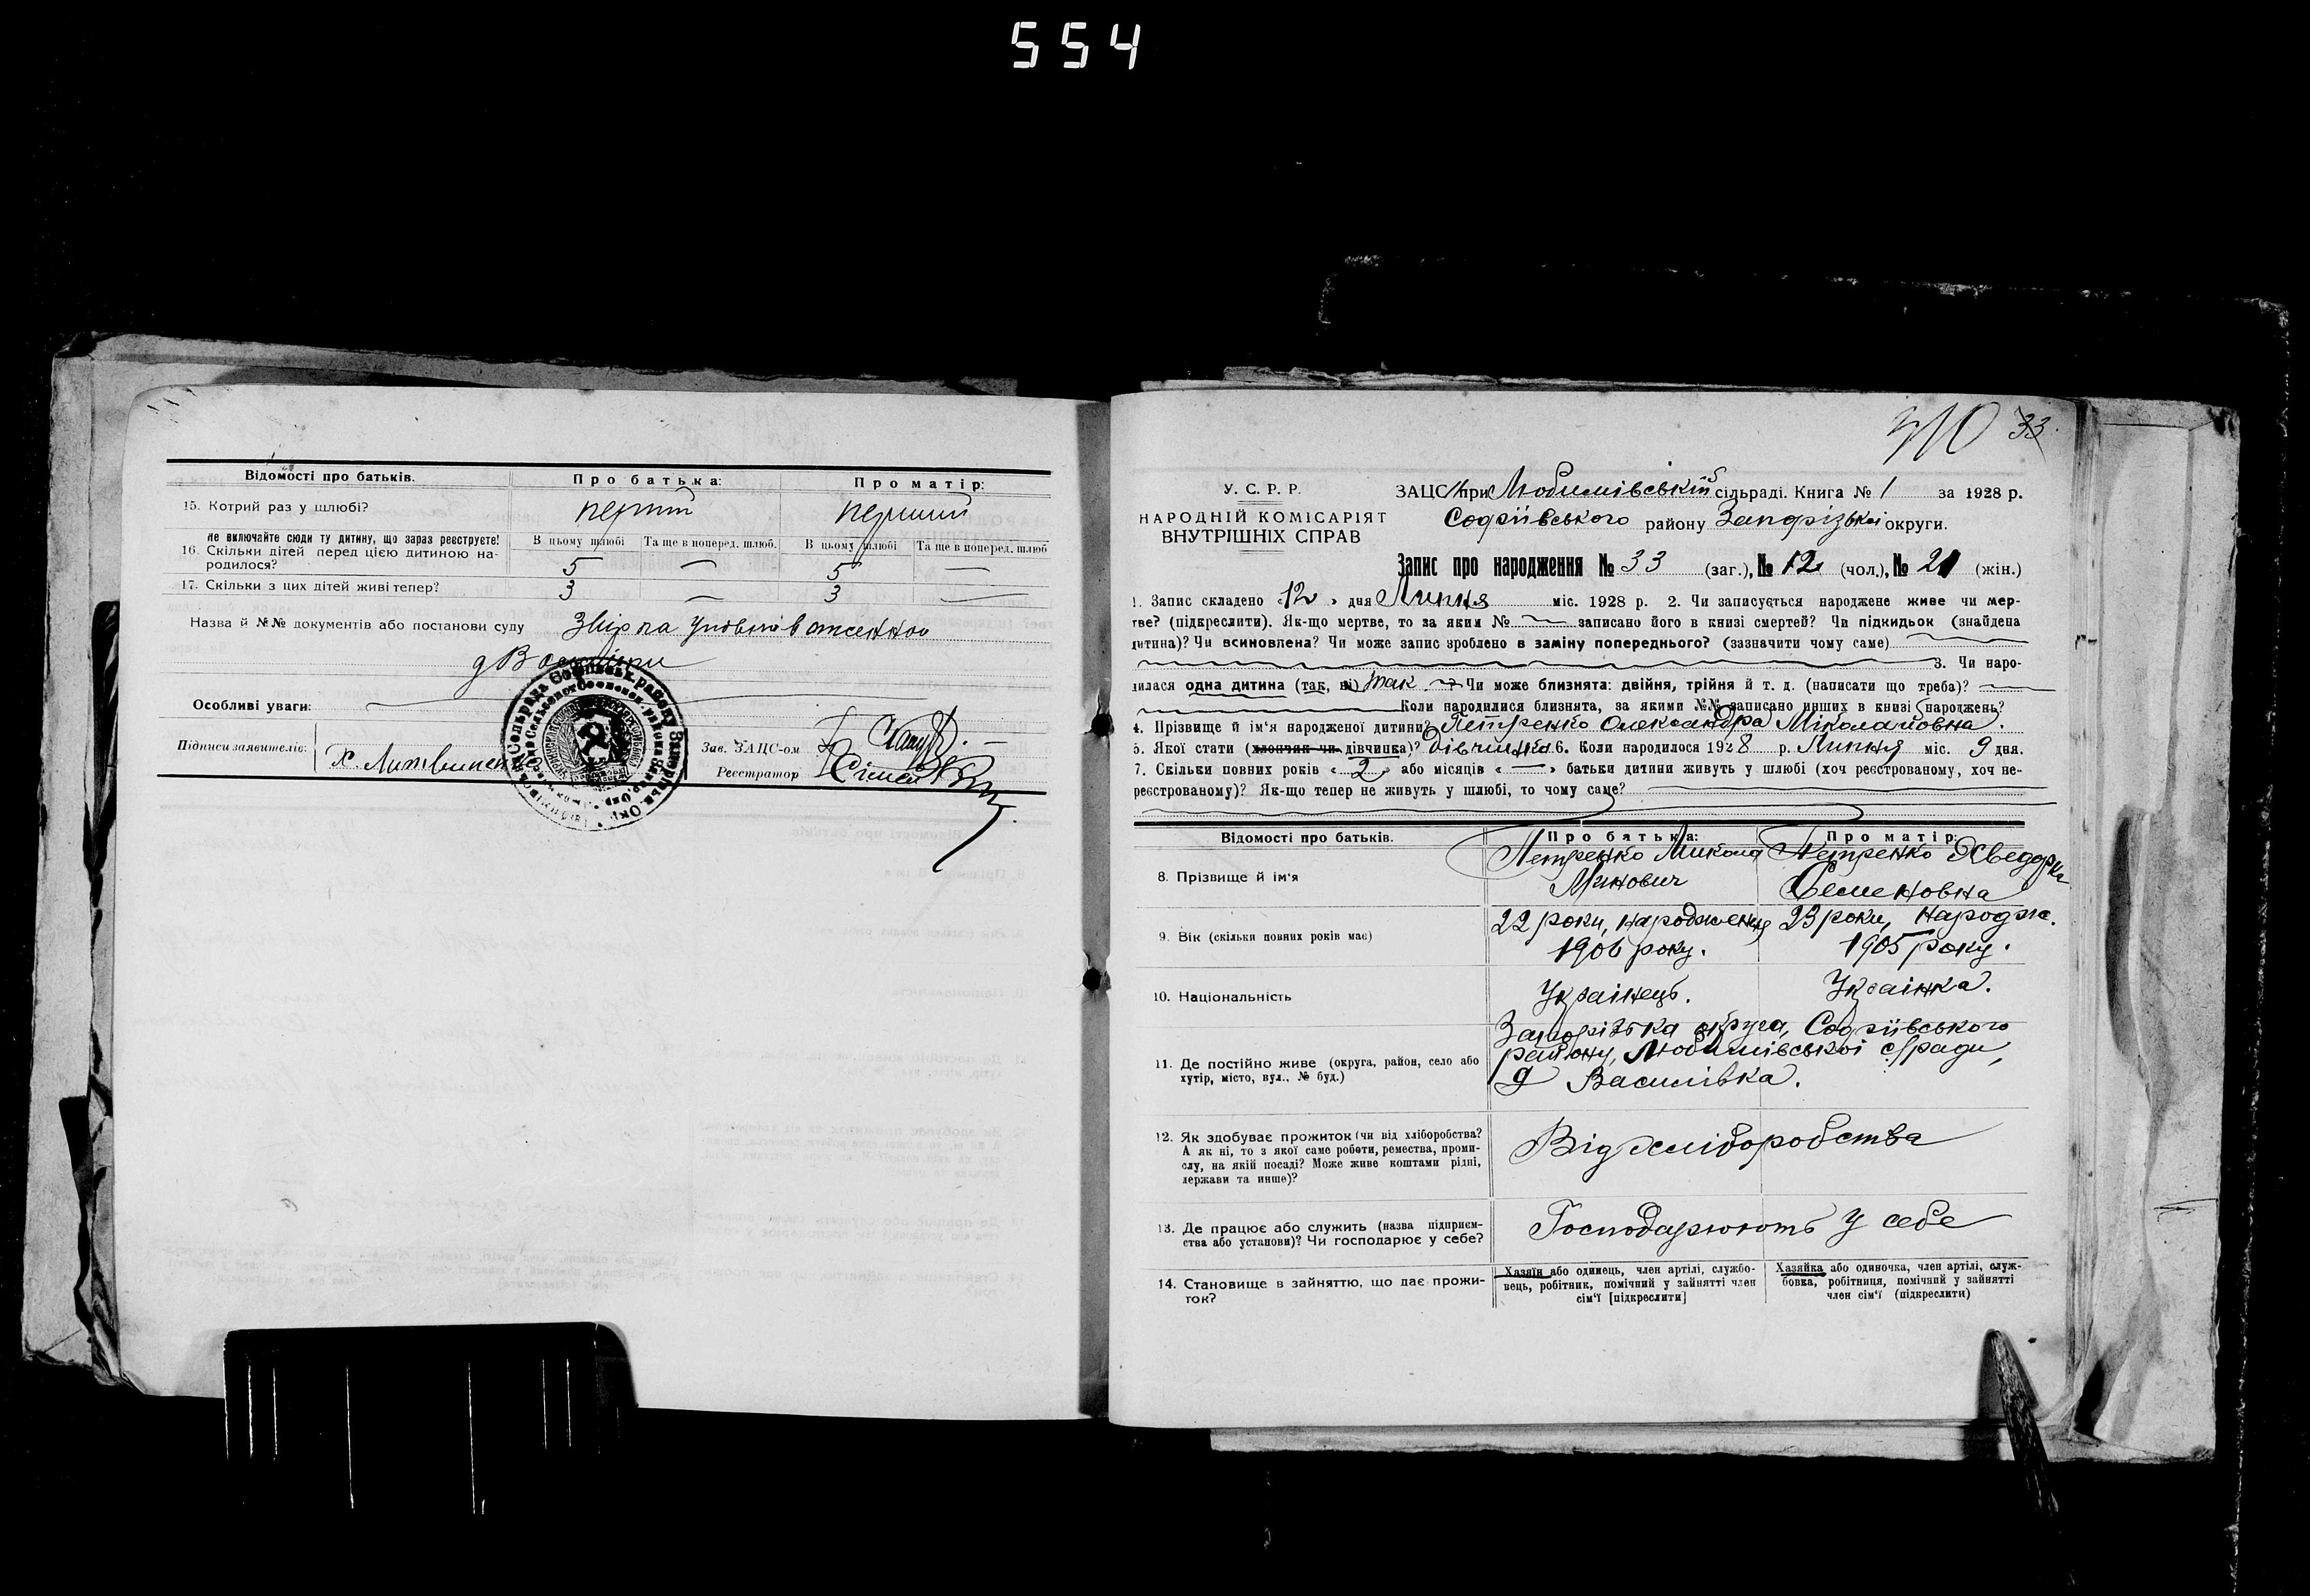 554
Відомості про батьків. Про батька: Про матір:
15. Котрий раз у шлюбі? перший перший
Не включайте сюди ту дитину, що зараз реєструєте! В цьому шлюбі Та ще в поперед. шлюб. В цьому шлюбі Та ще в поперед. шлюб
16. Скільки дітей перед цією дитиною на-
родилося? 5 — 5 —
17. Скільки з цих дітей живі тепер? 3 — 3 —
Назва й №№ документів або постанови суду Звірка уповноваженного
д Василівки
Особливі уваги:
Підписи заявителів: Х. Литвиненко Зав. ЗАЦС-ом
Реєстратор
310 33
У. С. Р. Р.
НАРОДНІЙ КОМІСАРІЯТ
ВНУТРІШНІХ СПРАВ
ЗАЦС при Любимівській сільраді. Книга № 1 за 1928 р.
Софіївського району Запорізької округи.
Запис про народження № 33 (заг.), № 12 (чол.), № 21 (жін.)
1. Запис складено «12» дня Липня міс. 1928 р. 2. Чи записується народжене живе чи мер-
тве? (підкреслити). Як-що мертве, то за яким № записано його в книзі смертей? Чи підкидьок (знайдена
дитина)? Чи всиновлена? Чи може запис зроблено в заміну попереднього? (зазначити чому саме)
3. Чи наро-
дилася одна дитина (так, ні) так Чи може близнята: двійня, трійня й т. д. (написати що треба)?
Коли народилися близнята, за якими №№ записано инших в книзі народжень?
4. Прізвище й ім'я народженої дитини? Петренко Олександра Міколайовна.
5. Якої статі (хлопчик чи дівчинка)? дівчинка 6. Коли народилося 1928 р. Липня міс. 9 дня.
7. Скільки повних років «2» або місяців «—» батьки дитини живуть у шлюбі (хоч реєстрованому, хоч не-
реєстрованому)? Як-що тепер не живуть у шлюбі, то чому саме?
Відомості про батьків. Про батька: Про матір:
8. Прізвище й ім'я Петренко Микола Минович Петренко Хведорка Семеновна
9. Вік (скільки повних років має) 22 роки, народження 1906 року. 23 роки, народж. 1905 року.
10. Національність Українець. Українка.
11. Де постійно живе (округа, район, село або
хутір, місто, вул., № буд.)
Запорізька округа, Софіївського
району, Любимівської с/ради,
д Василівка.
12. Як здобуває прожиток (чи від хліборобства?
А як ні, то з якої саме роботи, ремества, проми-
слу, на якій посаді? Може живе коштами рідні,
держави та инше)?
Від хліборобства
13. Де працює або служить (назва підприєм-
ства або установи)? Чи господарює у себе?
Господарюють у себе
14. Становище в зайняттю, що дає прожи-
ток?
Хазяїн або одинець, член артілі, службо-
вець, робітник, помічний у зайнятті член
сім'ї [підкреслити]
Хазяйка або одиночка, член артілі, служ-
бовка, робітниця, помічний у зайнятті
член сім'ї (підкреслити)